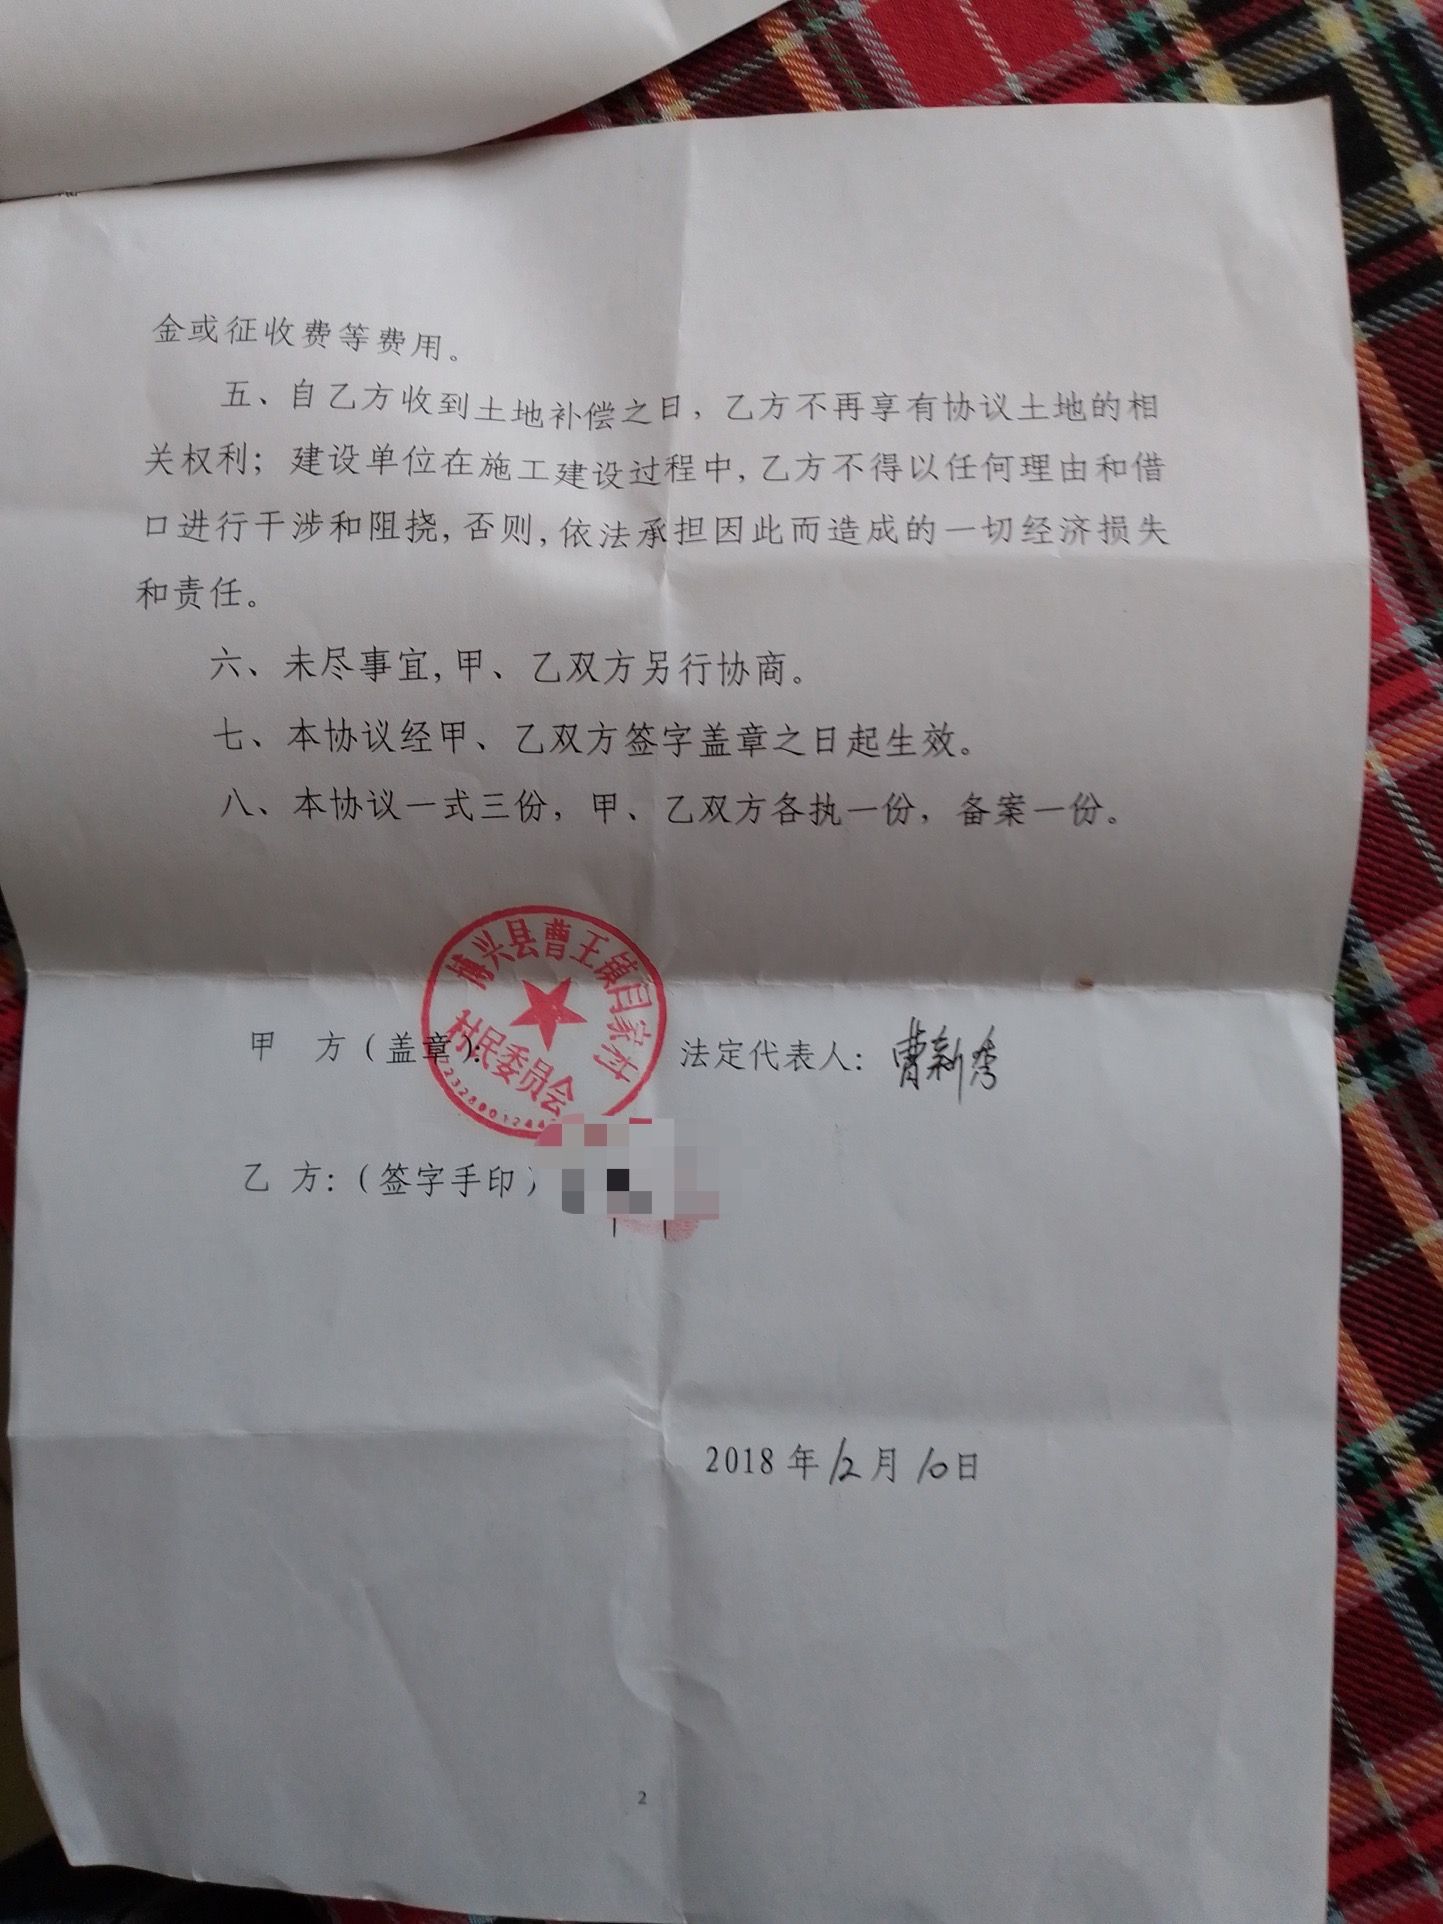 金或征收费等费用。
五、自乙方收到土地补偿之日，乙方不再享有协议土地的相
关权利；建设单位在施工建设过程中，乙方不得以任何理由和借
口进行干涉和阻挠，否则，依法承担因此而造成的一切经济损失
和责任。
六、未尽事宜，甲、乙双方另行协商。
七、本协议经甲、乙双方签字盖章之日起生效。
八、本协议一式三份，甲、乙双方各执一份，备案一份。
博兴县曹王镇闫家村
村民委员会
甲 方（盖章）： 法定代表人：曹新秀
乙 方：（签字手印）
2018年12月10日
2